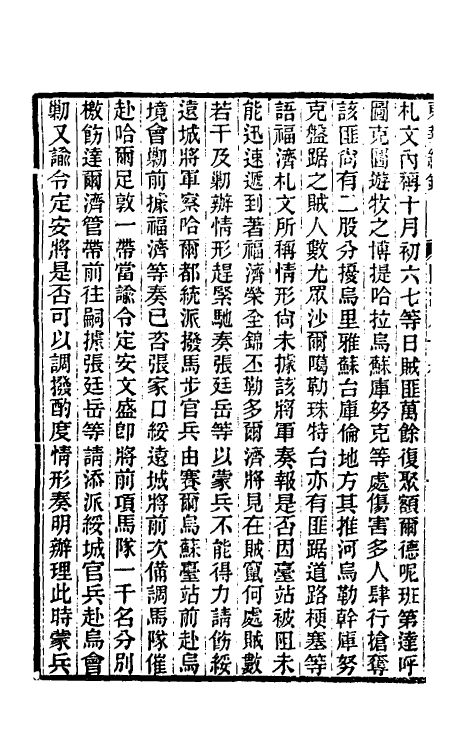 札文內稱十月初六七等日賊匪萬餘復聚額爾德呢班第達呼
圖克圖遊牧之博提哈拉烏蘇庫努克等處傷害多人肆行搶奪
該匪尙有二股分擾烏里雅蘇台庫倫地方其推河烏勒幹庫努
克盤踞之賊人數尤眾沙爾噶勒珠特台亦有匪踞道路梗塞等
語福濟札文所稱情形尙未據該將軍奏報是否因臺站被阻未
能迅速遞到著福濟榮全錦丕勒多爾濟將見在賊竄何處賊數
若干及勦辦情形趕緊馳奏張廷岳等以蒙兵不能得力請飭綏
遠城將軍察哈爾都統派撥馬步官兵由賽爾烏蘇臺站前赴烏
境會勦前據福濟等奏已咨張家口綏遠城將前次備調馬隊催
赴哈爾尼敦一帶當諭令定安文盛卽將前項馬隊一千名分別
檄飭達爾濟管帶前往嗣據張廷岳等請添派綏城官兵赴烏會
勦又諭令定安將是否可以調撥酌度情形奏明辦理此時蒙兵